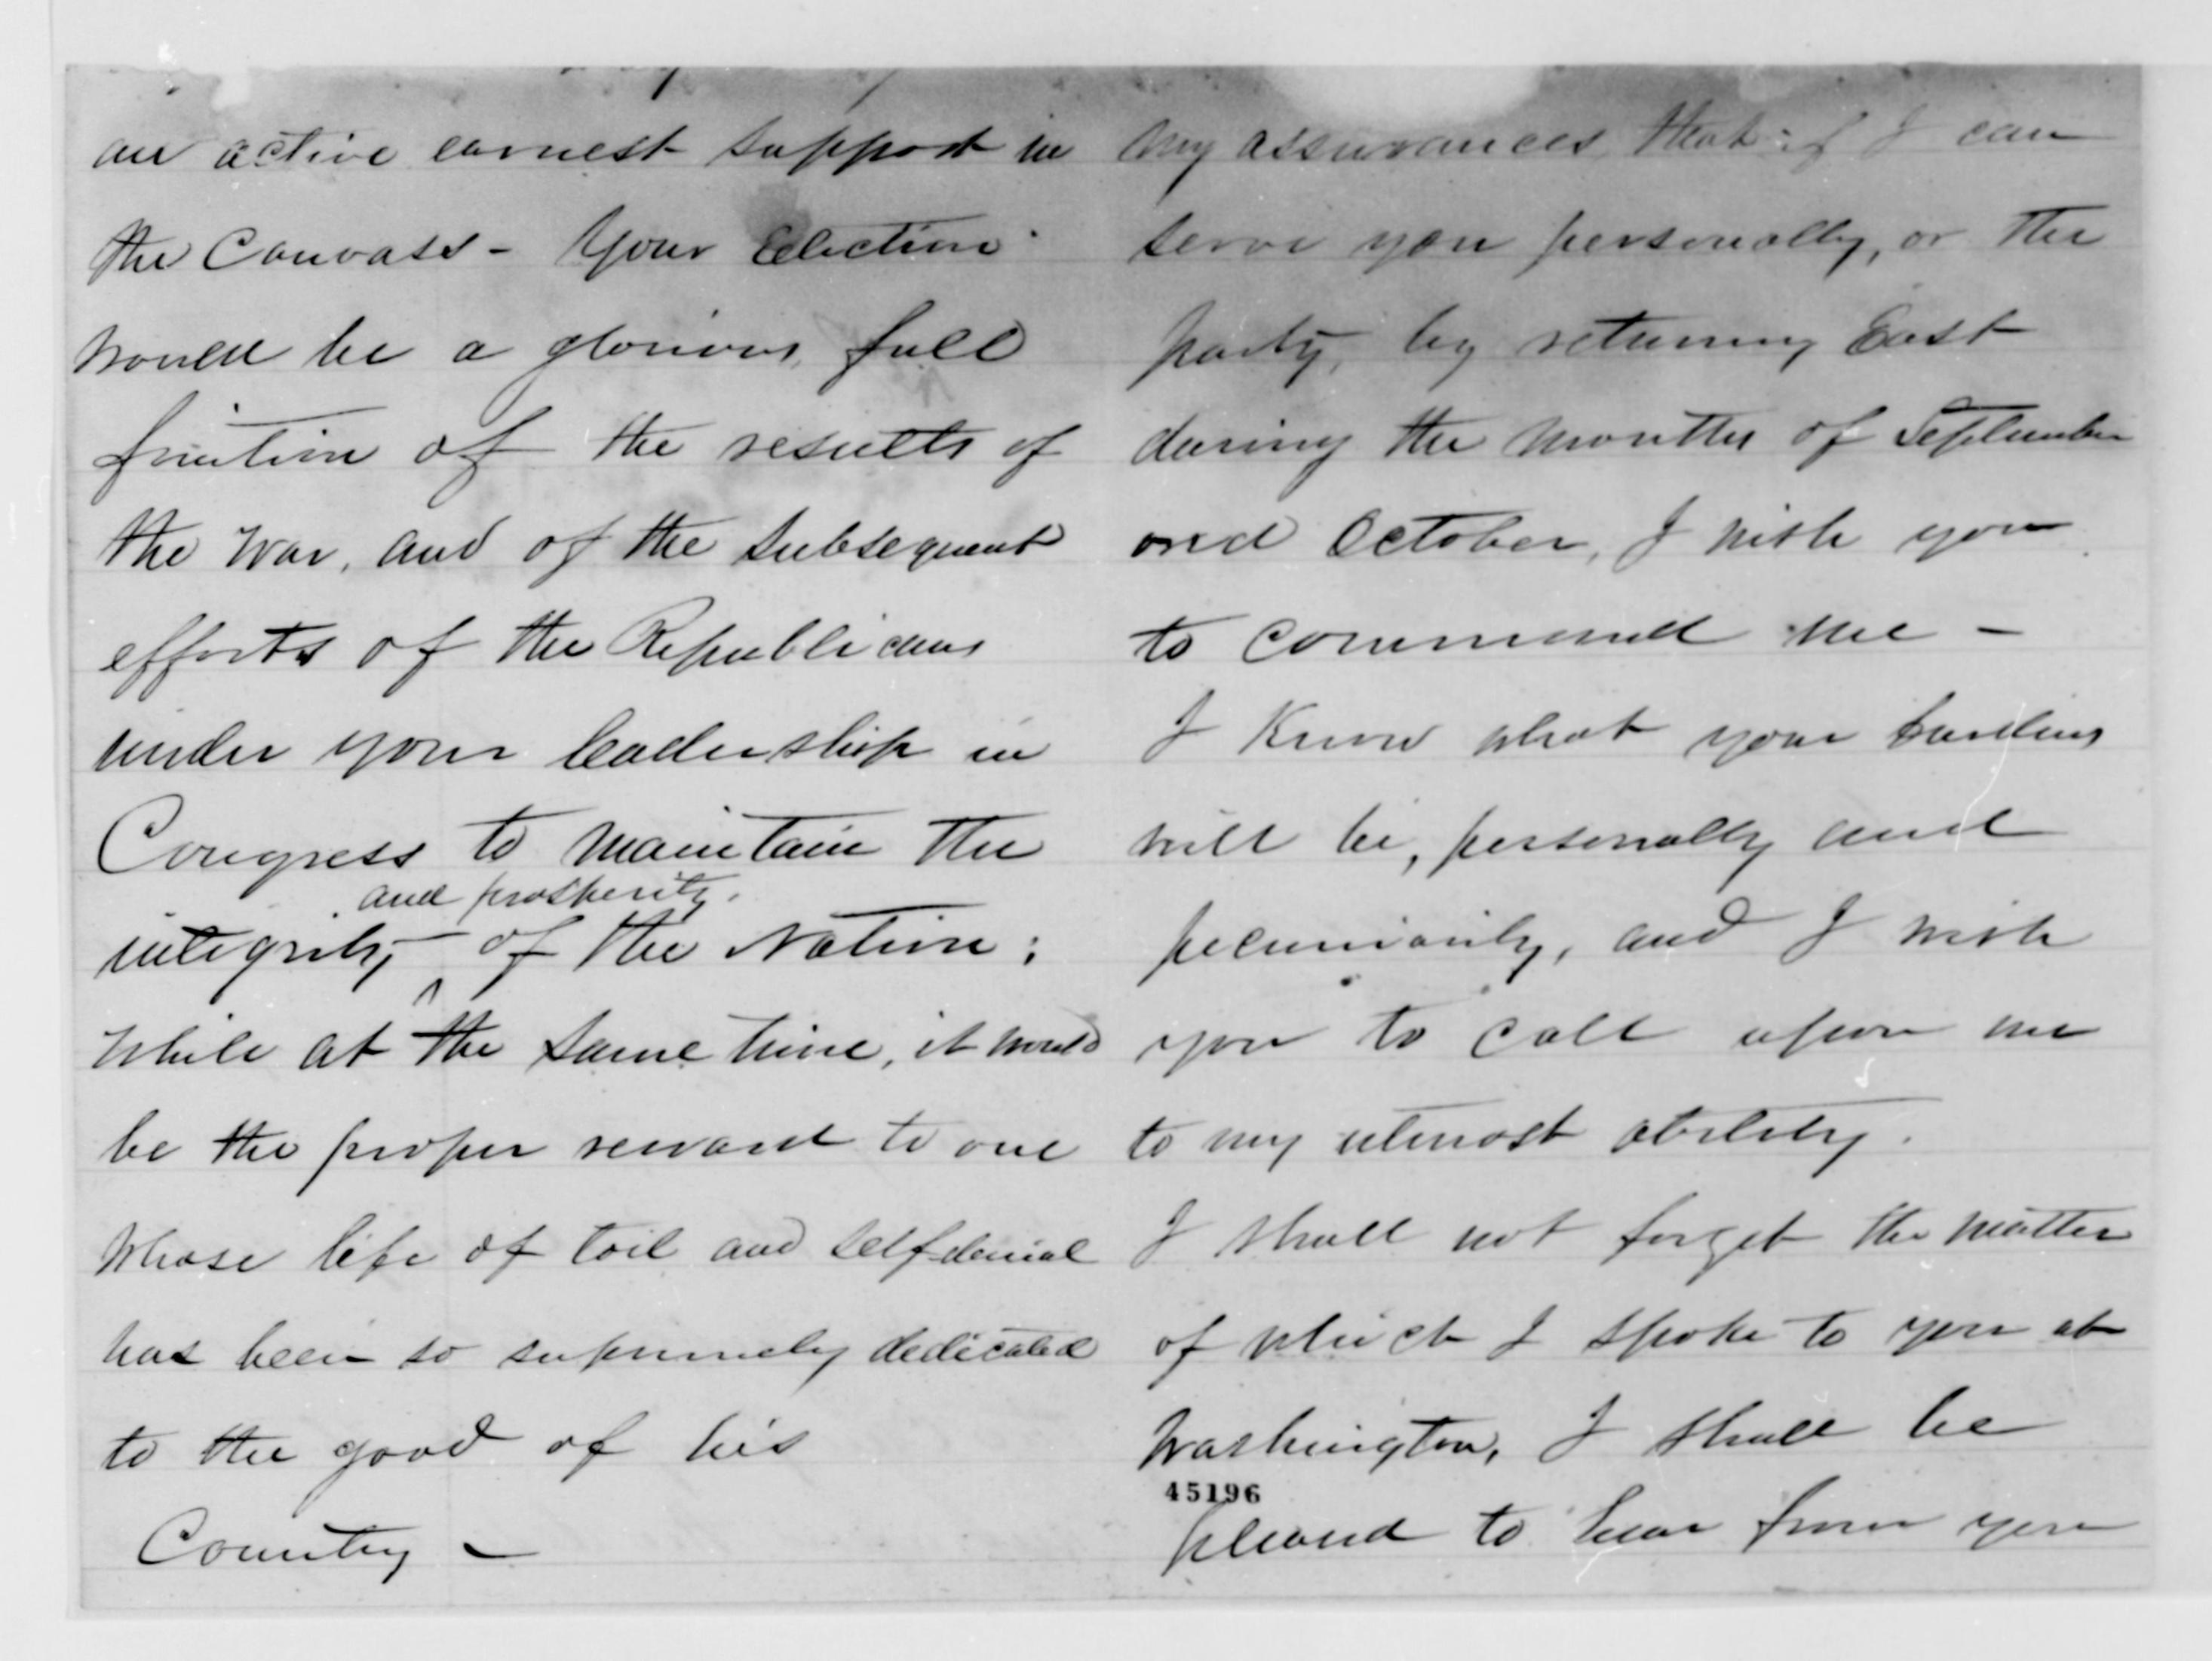 an active earnest support in
the Canvass - Your Election
would be a glorious, full
fruition of the results of
the War, and of the subsequent
efforts of the Republicans
under your leadership in
Congress to maintain the
and prosperity.
integrity of the Nation;
while at the same time, it would
be the proper reward to one
whose life of toil and self denial
has been so supremely dedicated
to the good of his
Country -
my assurances, that if I can
serve you personally, or the
party, by returning East
during the months of September
and October, I wish you
to command me -
I know what your burdens
will be, personally and
pecuniarily, and I wish
you to call upon me
to my utmost ability.
I shall not forget the matter
of which I spoke to you at
Washington, I shall be
45196
pleased to hear from you